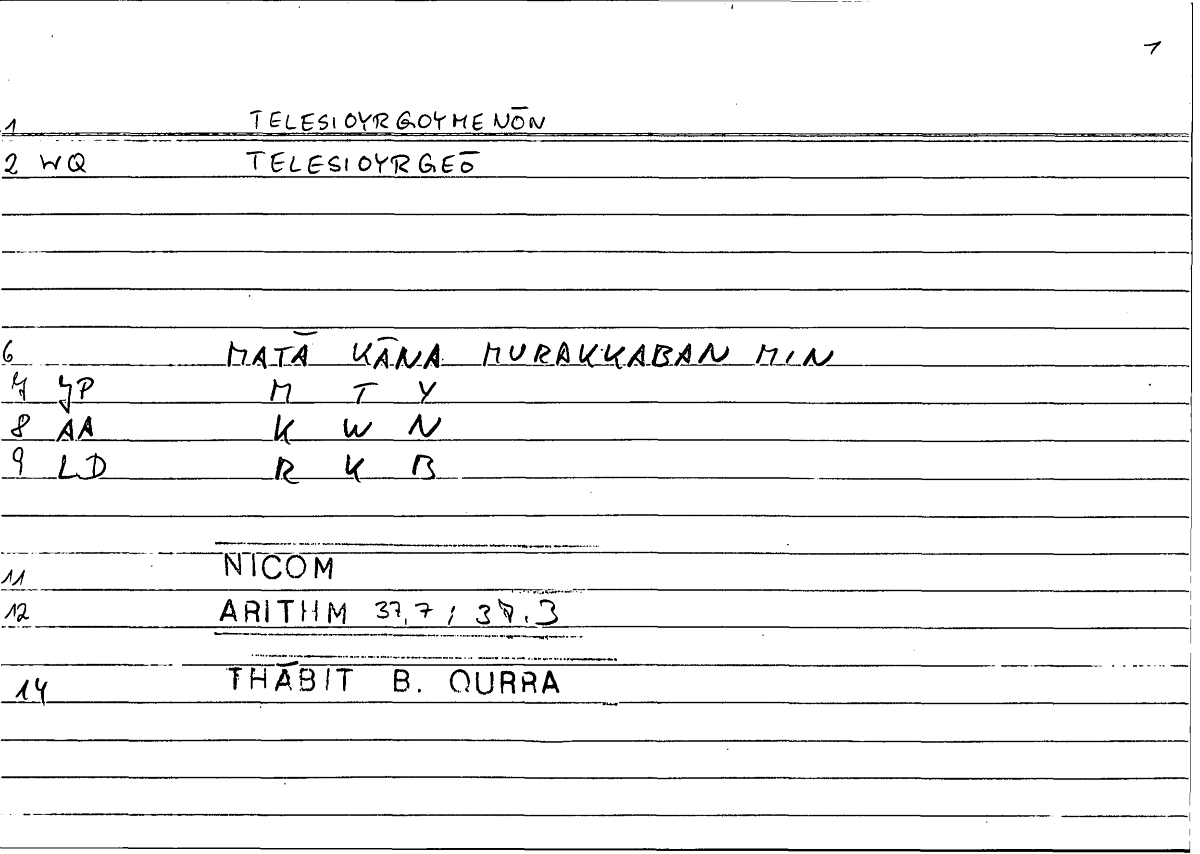 1
1 TELESIOYRGOYMENŌN
2 WQ TELESIOYRGEŌ
6 MATĀ KĀNA MURAKKABAN MIN
7 JP M T Y
8 AA K W N
9 LD R K B
11 NICOM
12 ARITHM 37,7;
14 THĀBIT B. QURRA